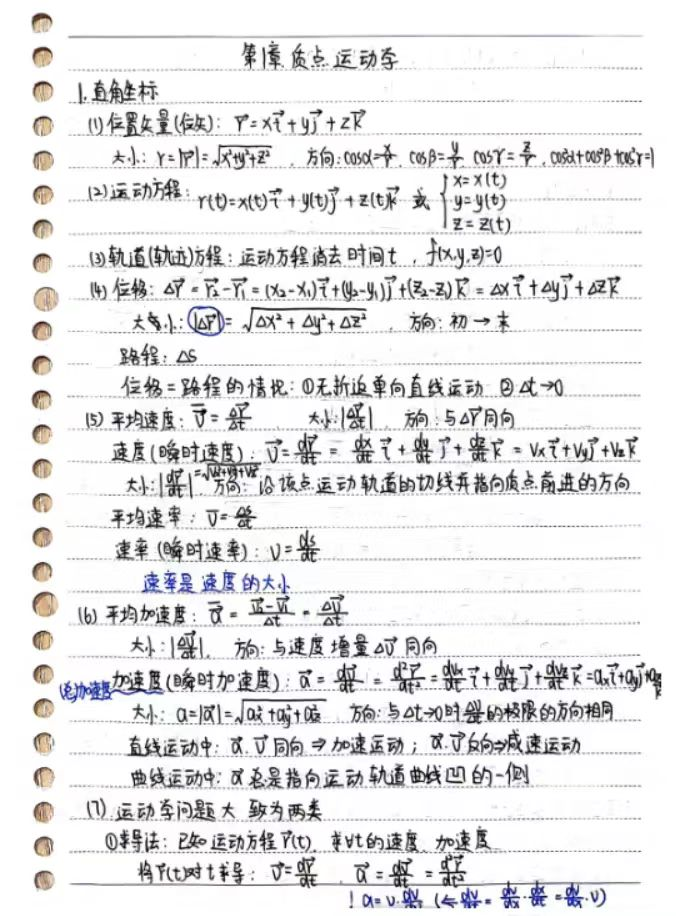 第1章 质点运动学
1.直角坐标
(1)位置矢量(位矢): r⃗=xi⃗+yj⃗+zk⃗
大小: r=|r⃗|=√(x²+y²+z²) , 方向:cosα=x/r, cosβ=y/r cosγ=z/r , cos²α+cos²β+cos²γ=1
(2)运动方程: r(t)=x(t)i⃗+y(t)j⃗+z(t)k⃗ 或 { x=x(t)
y=y(t)
z=z(t)
(3)轨道(轨迹)方程: 运动方程消去时间t , f(x,y,z)=0
(4)位移: Δr⃗=r⃗₂-r⃗₁=(x₂-x₁)i⃗+(y₂-y₁)j⃗+(z₂-z₁)k⃗=Δxi⃗+Δyj⃗+Δzk⃗
大小: |Δr⃗|=√(Δx²+Δy²+Δz²) , 方向: 初→末
路程: Δs
位移=路程的情况: ①无折返单向直线运动 ②Δt→0
(5)平均速度: v⃗=Δr⃗/Δt 大小:|Δr⃗/Δt| 方向:与Δr⃗同向
速度(瞬时速度): v⃗=dr⃗/dt=dx/dt i⃗+dy/dt j⃗+dz/dt k⃗=Vxi⃗+Vyj⃗+Vzk⃗
大小:|dr⃗/dt|=√(Vx²+Vy²+Vz²) 方向: 沿该点运动轨道的切线并指向质点前进的方向
平均速率: v̄=Δs/Δt
速率(瞬时速率): v=ds/dt
速率是速度的大小
(6)平均加速度: a⃗=(v⃗₂-v⃗₁)/Δt=Δv⃗/Δt
大小:|Δv⃗/Δt|, 方向:与速度增量Δv⃗同向
(总)加速度 加速度(瞬时加速度): a⃗=dv⃗/dt=d²r⃗/dt²=dvx/dt i⃗+dvy/dt j⃗+dvz/dt k⃗=axi⃗+ayj⃗+azk⃗
大小: a=|a⃗|=√(ax²+ay²+az²) 方向:与Δt→0时Δv⃗/Δt的极限的方向相同
直线运动中: a⃗.v⃗同向⇒加速运动; a⃗.v⃗反向⇒减速运动
曲线运动中: a⃗总是指向运动轨道曲线凹的一侧
(7).运动学问题大致为两类
①求导法: 已知运动方程r⃗(t), 求∀t的速度、加速度
将r⃗(t)对t求导: v⃗=dr⃗/dt , a⃗=dv⃗/dt=d²r⃗/dt²
! a=v·dv/dx (⇐dv/dt=dv/dx·dx/dt=dv/dx·v)